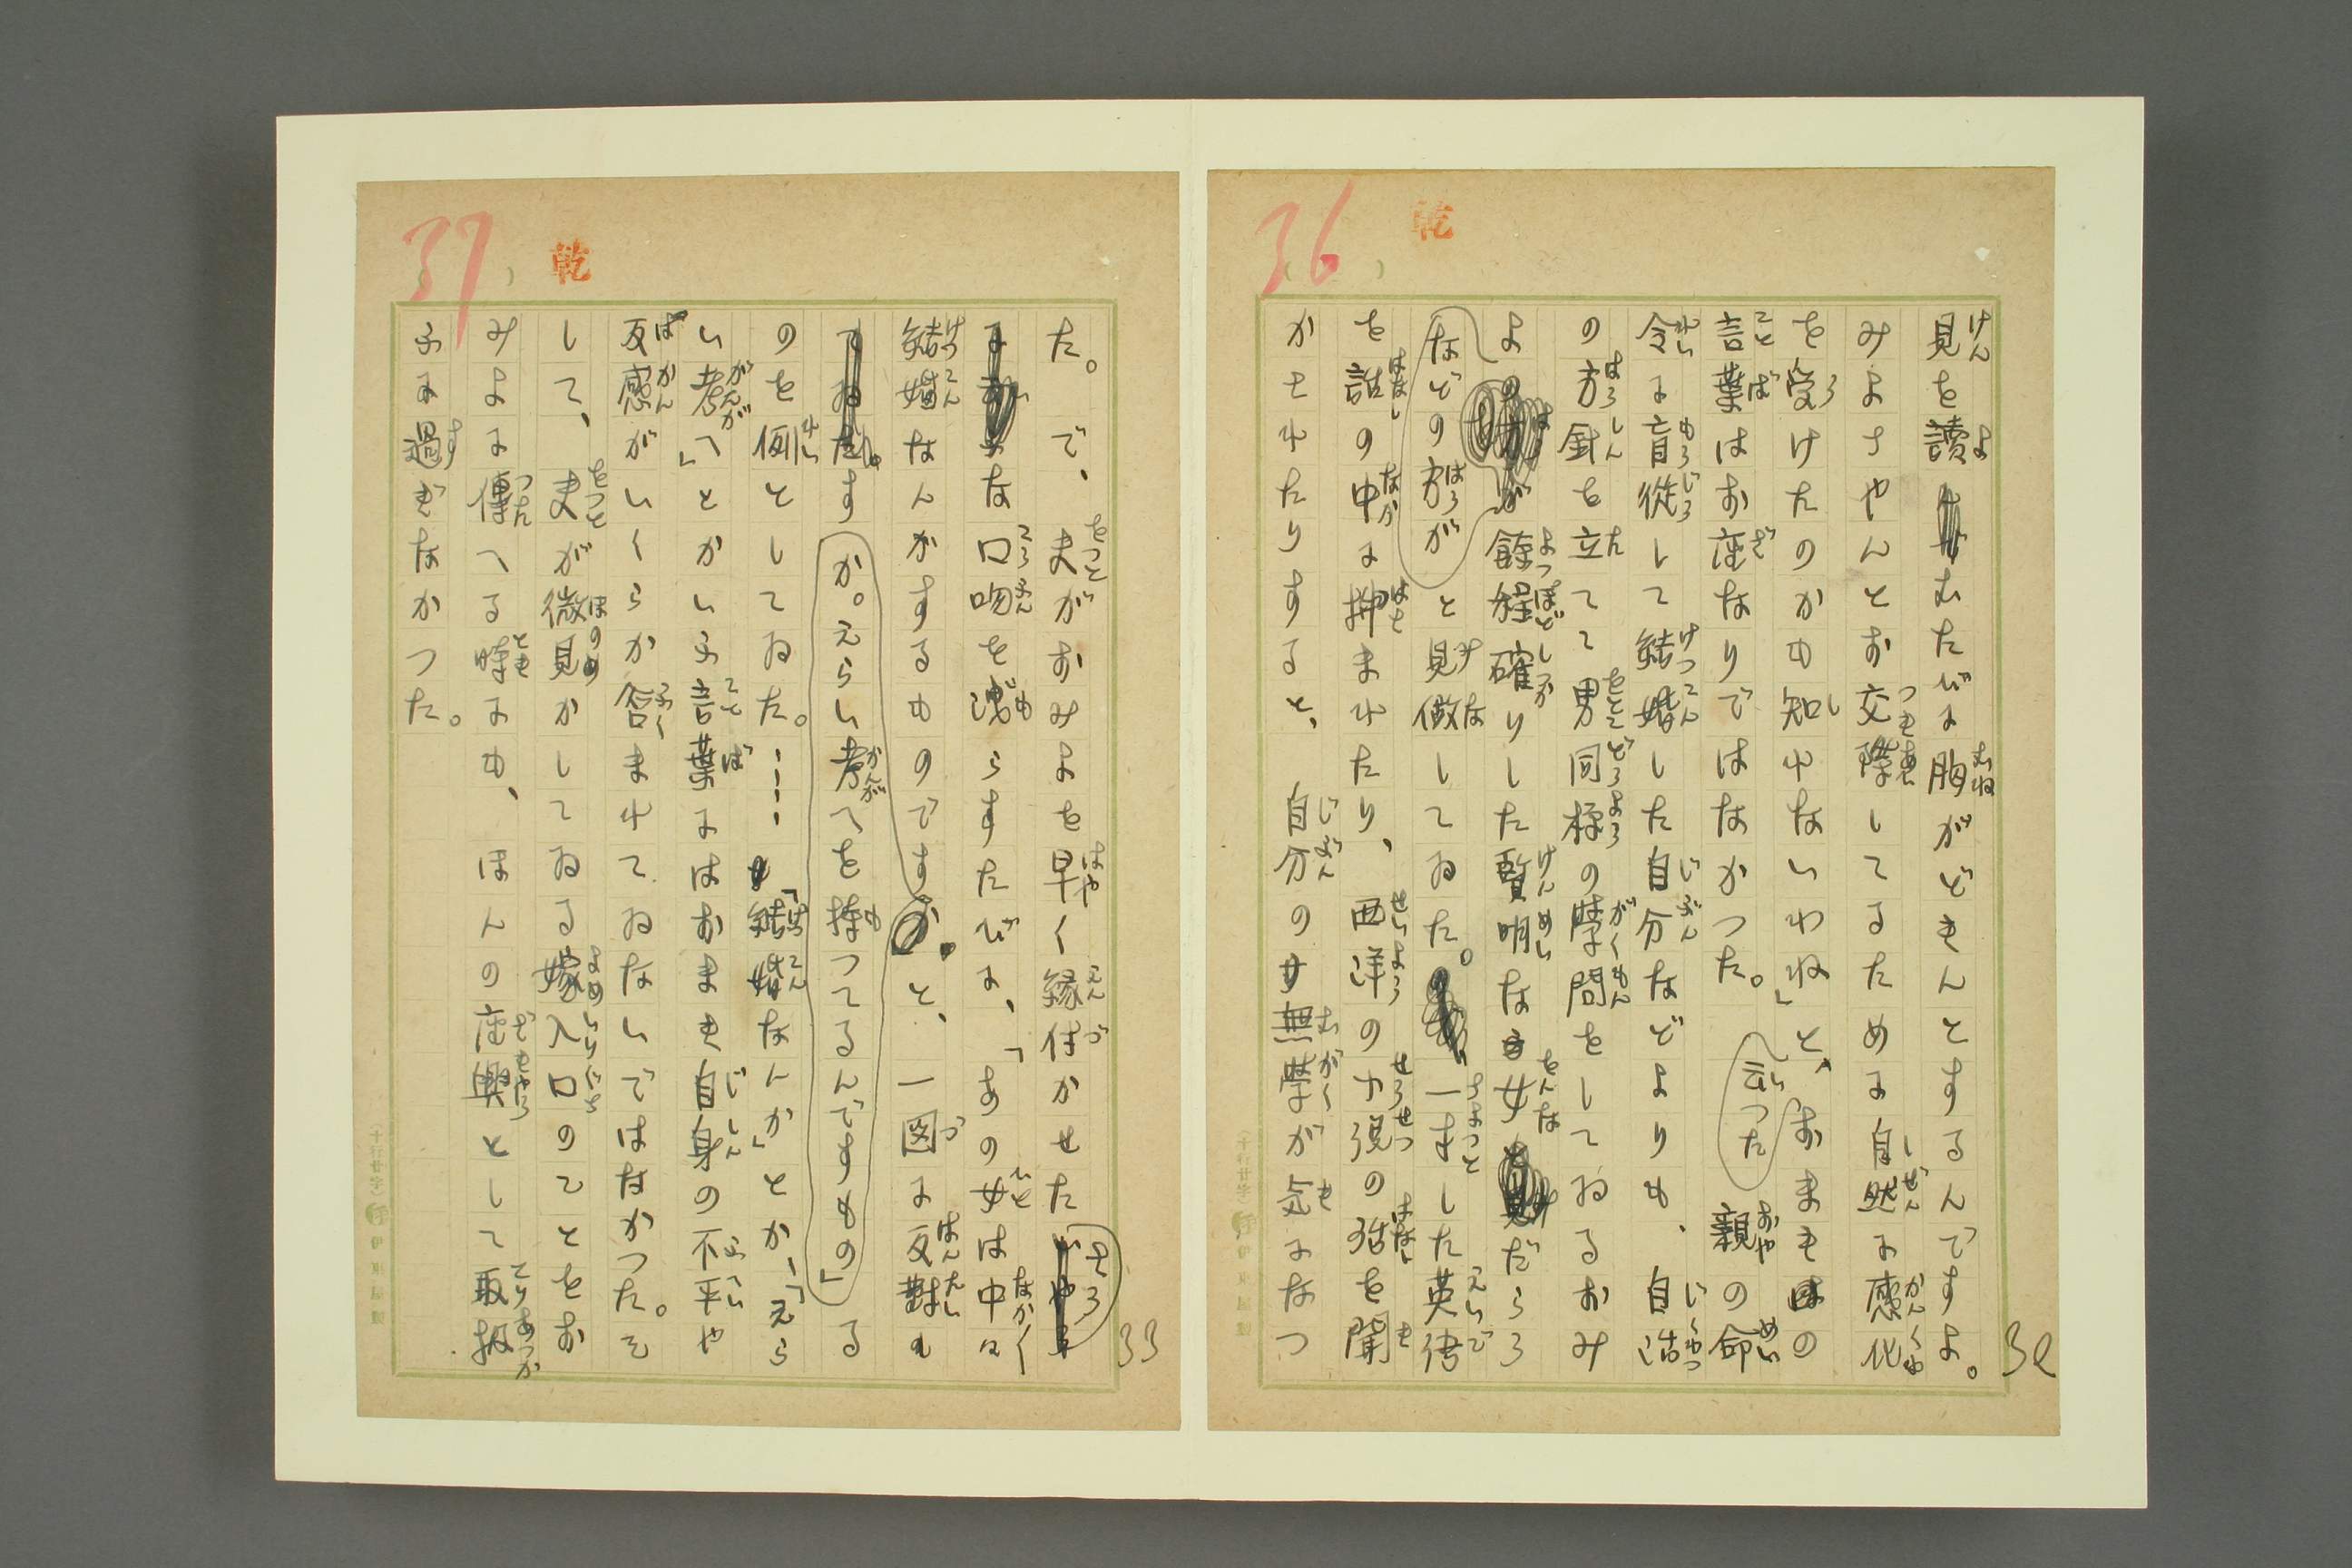 36
乾
32
見を讀むたびに胸がどきんとするんですよ。
みよさやんとお交際してるために自然に感化
を受けたのかも知れないわね」と、おまきの
言葉はお座なりではなかつた。云つた親の命
令に盲從して結婚した自分などよりも、自活
の方針を立てて男同樣の學問をしてゐるおみ
よなどの方が餘程確りした賢明な女だらう
と見做してゐた。一寸した英傳
を話の中に挿まれたり、西洋の小説の話を聞
かされたりすると、自分の無學が気になつ
37
乾
33
た。で、夫がおみよを早く縁付かせたさう
な口吻を洩らすたびに、「あの女は中々
結婚なんかするものですか。えらい考へを持つてるんですもの」と、一図に反對す
るのを例としてゐた。……「結婚なんか」とか、「えら
い考へ」とかいふ言葉にはおまき自身の不平や
反感がいくらか含まれてゐないではなかつた。そ
して、夫が微見かしてゐる嫁入口のことをお
みよに傳へる時にも、ほんの座興として取扱
ふに過ぎなかつた。